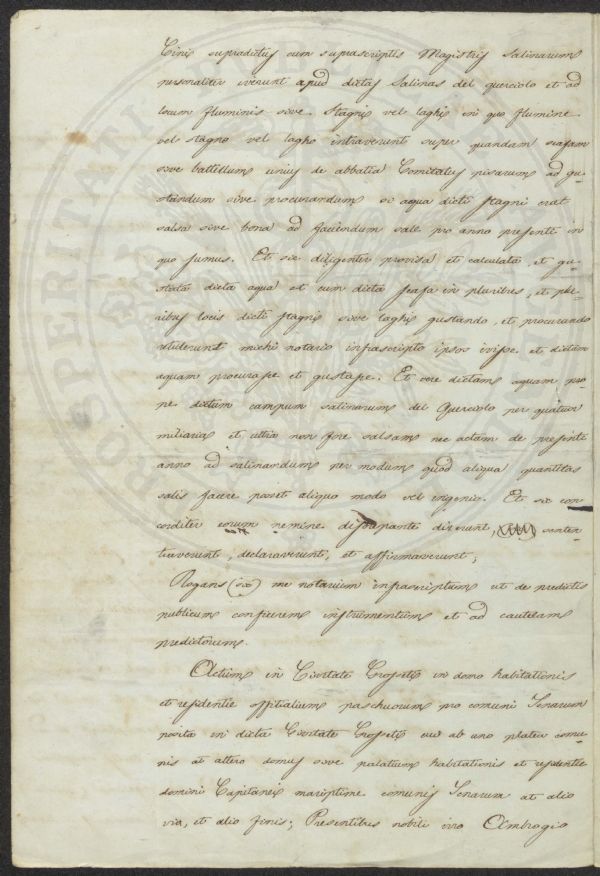 Cinis supradictus cum suprascriptis Magistris Salinarum
personaliter iverunt apud dictas Salinas del querciolo et ad
locum fluminis sive Stagnis vel laghis in quo flumine
vel stagno vel lagho intraverunt super quandam scafam
sive battellum unius de abbatia Comitatus pisarum ad gu-
standum sive procurandum si aqua dicti stagni erat
salsa sive bona ad faciendum sale pro anno presente in
quo sumus. Et sic diligenter provisa et calculata, et gu-
stata dicta aqua et cum dicta scafa in pluribus, et plu-
ribus locis dicti stagnis sive laghis gustando, et procurando
retulerunt michi notario infrascripto ipsos ivisse et dictam
aquam procurasse et gustasse. Et vere dictam aquam pro-
pe dictum campum salinarum del Querciolo per quatuor
miliaria et ultra non fore salsam nec actam de presenti
anno ad salinandum per modum quod aliqua quantitas
salis facere poset aliquo modo vel ingenio. Et sic con
corditer eorum nemine discrepante dixerunt, senten-
tiaverunt, declaraverunt, et affirmaverunt;
Rogans (sic) me notarium infrascriptum ut de predictis
publicum conficerem instrumentum et ad cautelam
predictorum.
Actum in Civitate Grosseti in domo habitationis
et residentie offitialium paschuorum pro comuni Senarum
posita in dicta Civitate Grosseti cui ab uno platea comu-
nis at altero domus sive palatium habitationis et residentie
domini Capitanei mariptime comunis Senarum at alio
via, et alio finis; Presentibus nobili viro Ambrogio
PROSPERITATI